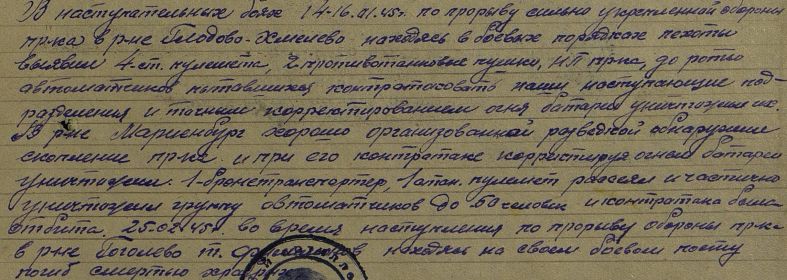 В наступательных боях 14-16.01.45г. по прорыву сильно укрепленной обороны
пр-ка в р-не Глодово-Хмелево находясь в боевых порядках пехоты
выявил 4-ст. пулемета, 2 противотанковые пушки, НП пр-ка, до роты
автоматчиков пытавшихся контратаковать наши наступающие под-
разделения и точным корректированием огня батареи уничтожил их.
В р-не Мариенбург хорошо организованной разведкой обнаружил
скопление пр-ка и при его контратаке корректируя огнем батареи
уничтожил 1-бронетранспортер, 1 стан. пулемет рассеял и частично
уничтожил группу автоматчиков до 50 человек и контратака была
отбита. 25.02.45г. во время наступления по прорыву обороны пр-ка
в р-не Гоголево т. находясь на своем боевом посту
погиб смертью храбрых